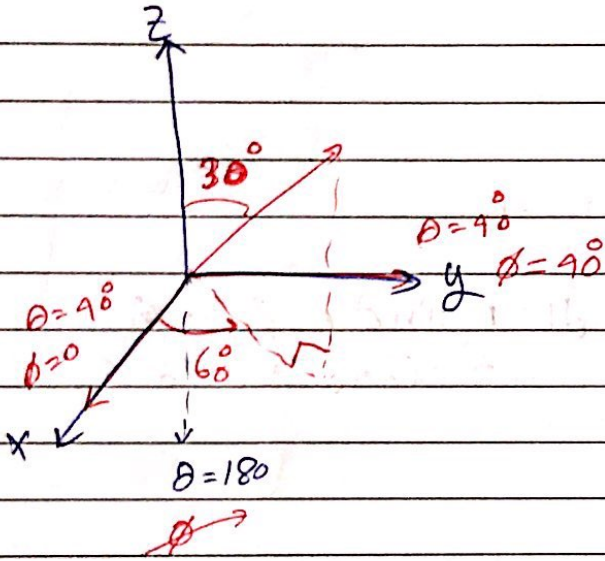 Z
30°
θ=90°
y φ=90°
θ=90°
φ=0
60°
x
θ=180
φ